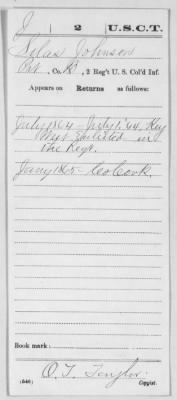 J | 2 | U.S.C.T.
Silas Johnson
Pvt, Co. B, 2 Reg't U. S. Col'd Inf.
Appears on
Returns as follows:
July 1864 - July 1, '64, Key
West Enlisted in
the Regt.
Jany 1865 - Co Cook.
Book mark:
O. T. Taylor
(546) Copyist.